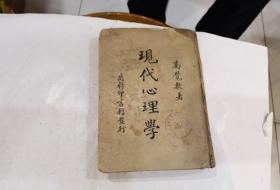 高覺敷著
現代心理學
商務印書館發行